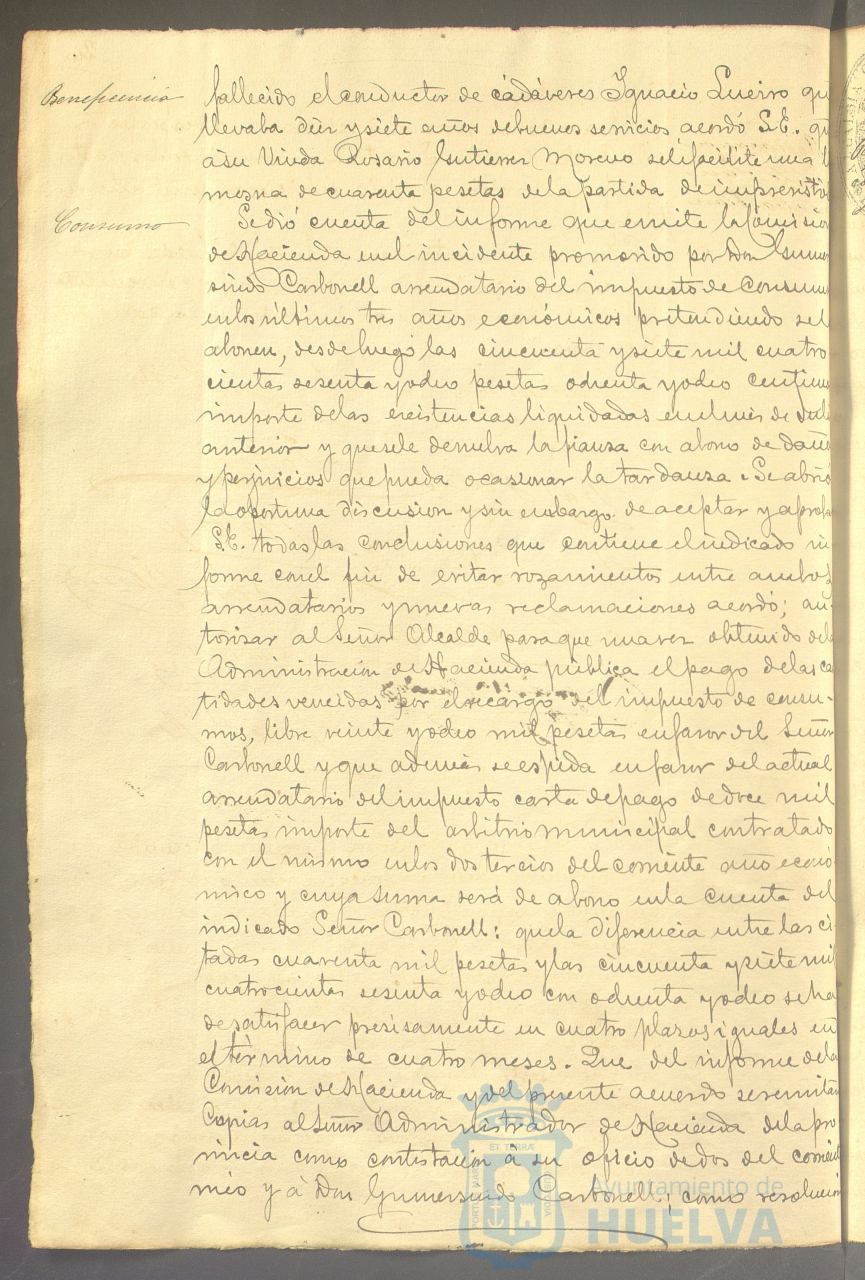 Beneficencia
fallecido el conductor de cadáveres Ignacio Lueiro qu
llevaba diez y siete años de buenos servicios acordó S.E. qu
á su Viuda Rosario Gutierrez Moreno se le facilite una li
mosna de cuarenta pesetas de la partida de imprevistos
Consumo
Se dió cuenta del informe que emite la Comision
de Hacienda en el incidente promovido por Don Gumer
sindo Carbonell arrendatario del impuesto de consumos
en los últimos tres años económicos pretendiendo se l
abonen, desde luego las cincuenta y siete mil cuatro
cientas sesenta y ocho pesetas ochenta y ocho centimos
importe de las existencias liquidadas en el mes de Juli
anterior y que se le devuelva la fianza con abono de daños
y perjuicios que pueda ocasionar la tardanza. Se abrió
la oportuna discusion y sin embargo de aceptar y aproba
S.E. todas las conclusiones que contiene el indicado in
forme con el fin de evitar rozamientos entre ambos
arrendatarios y nuevas reclamaciones acordó; au-
torizar al Señor Alcalde para que una vez obtenido de la
Administración de Hacienda pública el pago de las can
tidades vencidas por el recargo del impuesto de consu-
mos, libre veinte y ocho mil pesetas en favor del Señor
Carbonell y que además se espida en favor del actual
arrendatario del impuesto carta de pago de doce mil
pesetas importe del arbitrio municipal contratado
con el mismo en los dos tercios del corriente año econó
mico y cuya suma será de abono en la cuenta del
indicado Señor Carbonell: que la diferencia entre las ci
tadas cuarenta mil pesetas y las cincuenta y siete mil
cuatrocientas sesenta y ocho con ochenta y ocho se ha
de satisfacer precisamente en cuatro plazos iguales en
el término de cuatro meses. Que del informe de la
Comisión de Hacienda y del presente acuerdo se remitan
Copias al Señor Administrador de Hacienda de la pro
vincia como contestación á su oficio de dos del corrient
mes y á Don Gumersindo Carbonell; como resolucion
ET TERRÆ
Ayuntamiento de
HUELVA